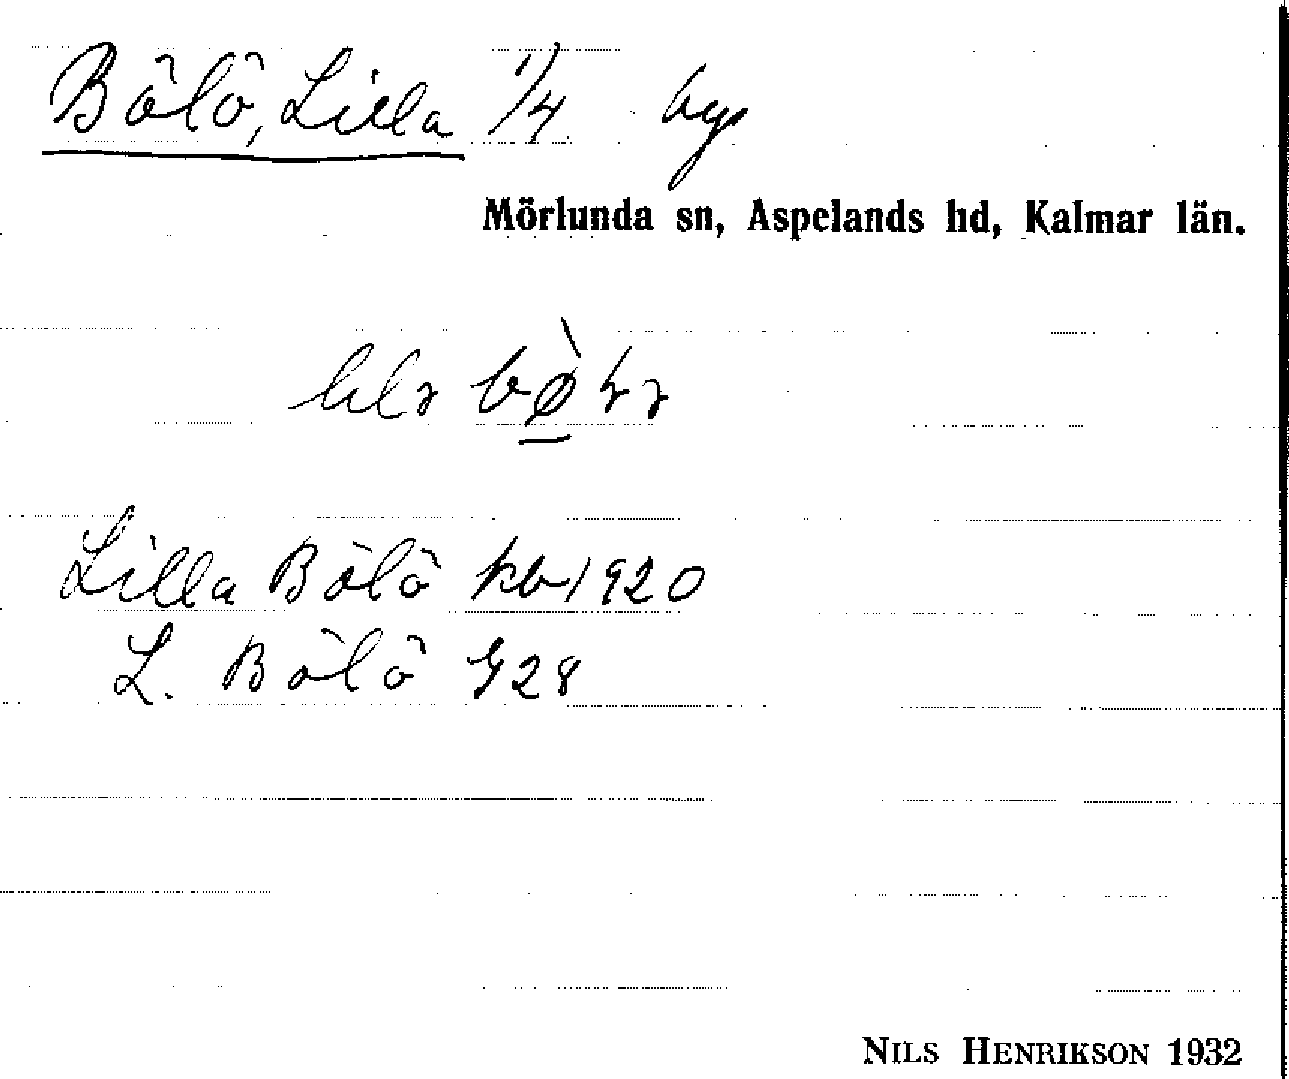 Bölö, Lilla 1/4 by
Mörlunda sn, Aspelands hd, Kalmar län.
Lilla Bölö kb 1920
L. Bölö G28
NILS HENRIKSON 1932